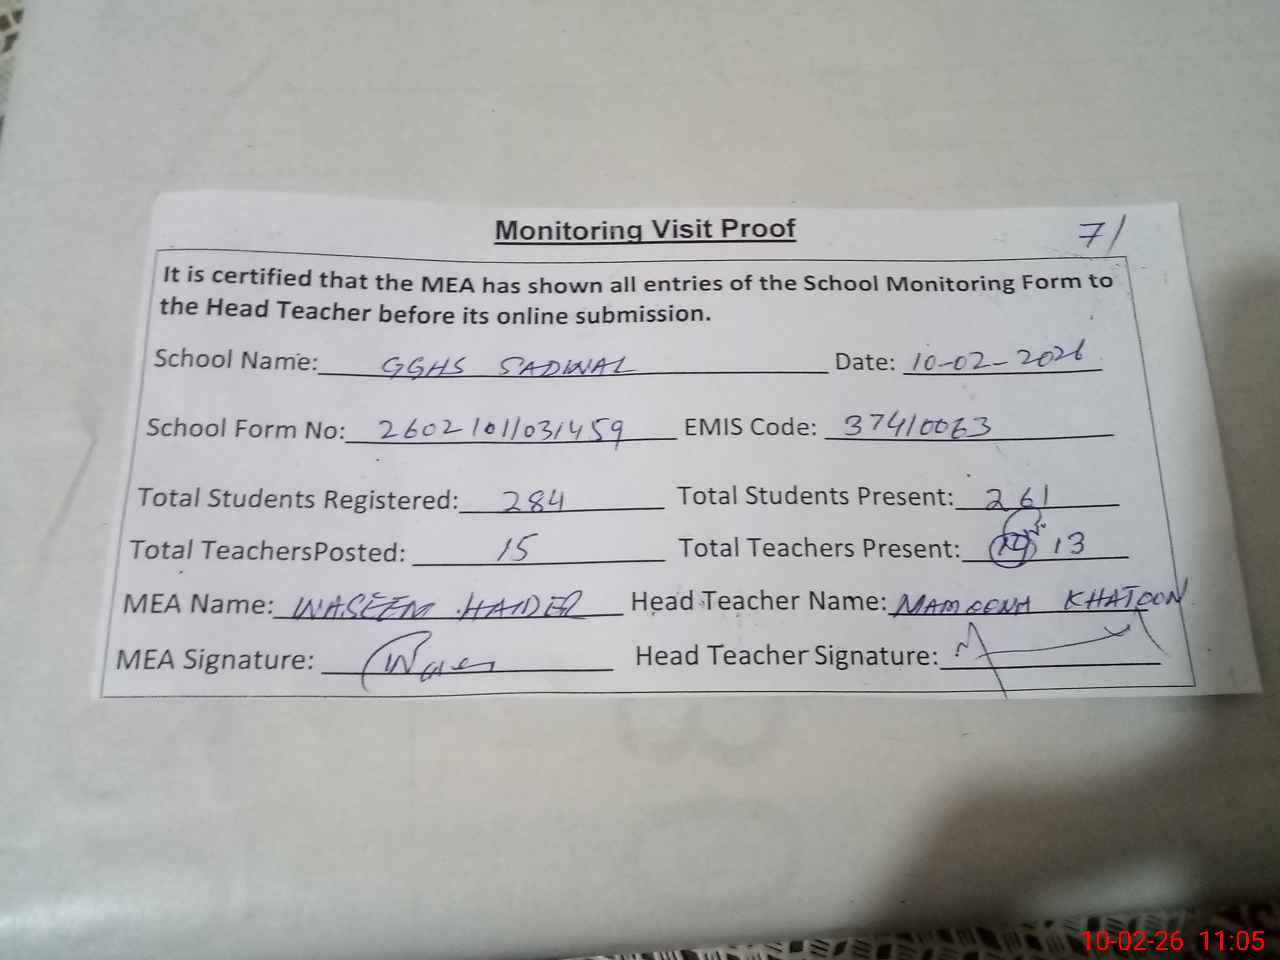 Monitoring Visit Proof
7/
It is certified that the MEA has shown all entries of the School Monitoring Form to
the Head Teacher before its online submission.
School Name: GGHS SADWAL Date: 10-02-2026
School Form No: 2602101/031459 EMIS Code: 37410063
Total Students Registered: 284 Total Students Present: 261
Total TeachersPosted: 15 Total Teachers Present: 13
MEA Name: WASEEM HAIDER Head Teacher Name: MAMOONA KHATOON
MEA Signature: Head Teacher Signature:
10-02-26 11:05